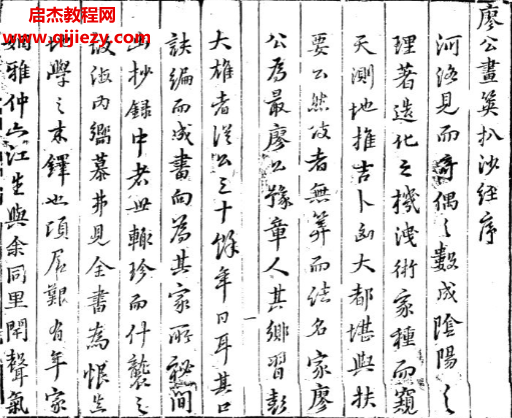 启杰教程网
www.qijiewl.com
廖公畫筴扒沙經序
河洛見而奇偶之數成陰陽之
理著造化之機洩術家種而窺
天測地推吉卜凶大都堪輿扶
要然者無筭而名家廖
公為最廖公豫章人其鄉習彭
大雄者從公三十餘年日耳其口
訣編而成書向為其家所秘間
出抄錄中世輒珍而什襲之
淑內嚮慕弗見全書為恨
地學之末鐸也頃居艱有年家
雅仲江生與余同里閈聲氣